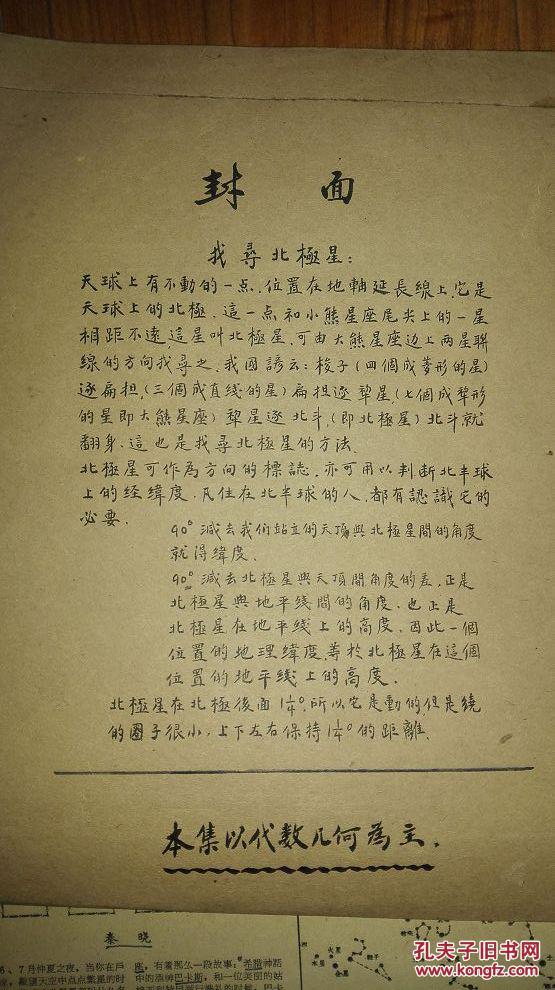 封 面
找尋北極星:
天球上有不動的一点.位置在地軸延長線上,它是
天球上的北極.這一点和小熊星座尾尖上的一星
相距不遠.這星叫北極星.可由大熊星座边上两星聯
線的方向找尋之.我國諺云:梭子(四個成菱形的星)
逐扁担,(三個成直线的星)扁担逐犂星(七個成犂形
的星即大熊星座)犂星逐北斗.(即北極星)北斗就
翻身.這也是找尋北極星的方法.
北極星可作為方向的標誌.亦可用以判断北半球
上的经緯度.凡住在北半球的人.都有認識它的
必要.
90°減去我們站立的天頂與北極星間的角度
就得緯度.
90°減去北極星與天頂間角度的差.正是
北極星與地平线間的角度.也正是
北極星在地平线上的高度.因此一個
位置的地理緯度,等於北極星在這個
位置的地平线上的高度.
北極星在北極後面1¼°,所以它是動的,但是繞
的圈子很小.上下左右保持1¼°的距離.
本集以代数几何為主.
秦 晓
6、7月仲夏之夜,当你在戶
座,有着那么一段故事,希腊神話
火星
水星
金星
孔夫子旧书网
www.kongfz.com